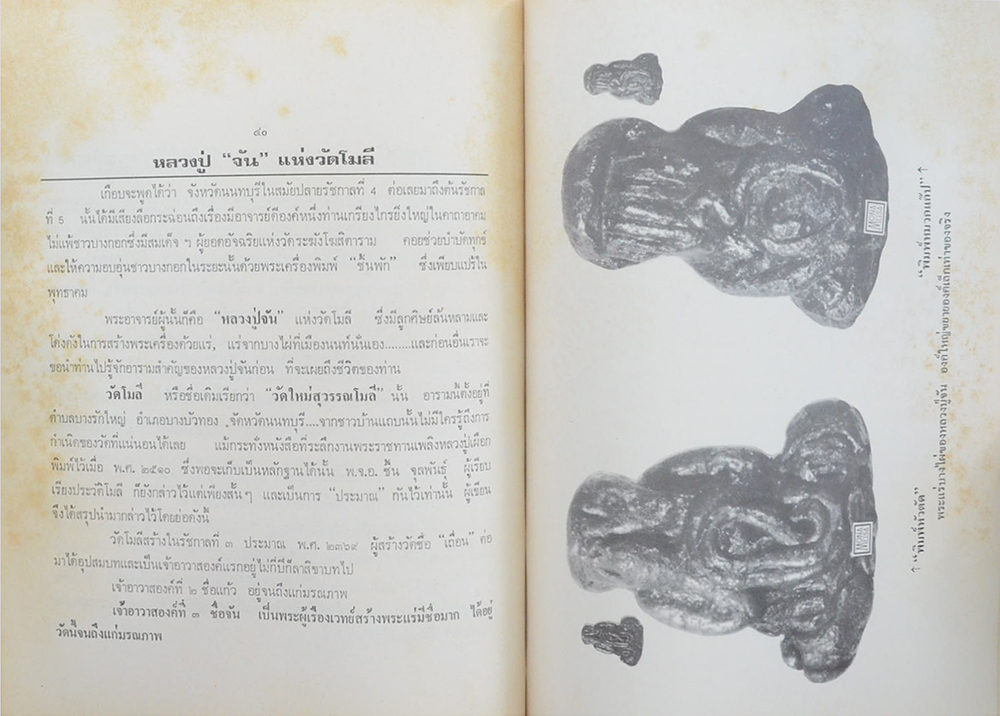 ๙๐
หลวงปู่ “จัน” แห่งวัดโมลี
เกือบจะพูดได้ว่า จังหวัดนนทบุรีในสมัยปลายรัชกาลที่ 4 ต่อเลยมาถึงต้นรัชกาล
ที่ 5 นั้นได้มีเสียงลือกระฉ่อนถึงเรื่องมีอาจารย์ดีองค์หนึ่งท่านเกรียงไกรยิ่งใหญ่ในคาถาอาคม
ไม่แพ้ชาวบางกอกซึ่งมีสมเด็จ ฯ ผู้ยอดอัจฉริยแห่งวัดระฆังโฆสิตาราม คอยช่วยบำบัดทุกข์
และให้ความอบอุ่นชาวบางกอกในระยะนั้นด้วยพระเครื่องพิมพ์ “ชิ้นฟัก” ซึ่งเพียบแปร้ใน
พุทธาคม
พระอาจารย์ผู้นั้นก็คือ “หลวงปู่จัน” แห่งวัดโมลี ซึ่งมีลูกศิษย์ล้นหลามและ
โด่งดังในการสร้างพระเครื่องด้วยแร่, แร่จากบางไผ่ที่เมืองนนท์นั่นเอง........และก่อนอื่นเราจะ
ขอนำท่านไปรู้จักอารามสำคัญของหลวงปู่จันก่อน ที่จะเผยถึงชีวิตของท่าน
วัดโมลี หรือชื่อเดิมเรียกว่า “วัดใหม่สุวรรณโมลี” นั้น อารามนี้ตั้งอยู่ที่
ตำบลบางรักใหญ่ อำเภอบางบัวทอง จังหวัดนนทบุรี....จากชาวบ้านแถบนั้นไม่มีใครรู้ถึงการ
กำเนิดของวัดที่แน่นอนได้เลย แม้กระทั่งหนังสือที่ระลึกงานพระราชทานเพลิงหลวงปู่เผือก
พิมพ์ไว้เมื่อ พ.ศ. ๒๕๑๐ ซึ่งพอจะเก็บเป็นหลักฐานได้นั้น พ.จ.อ. ชั้น จุลพันธุ์ ผู้เรียบ
เรียงประวัติโมลี ก็ยังกล่าวไว้แค่เพียงสั้น ๆ และเป็นการ “ประมาณ” กันไว้เท่านั้น ผู้เขียน
จึงได้สรุปนำมากล่าวไว้โดยย่อดังนี้
วัดโมลีสร้างในรัชกาลที่ ๓ ประมาณ พ.ศ. ๒๓๖๙ ผู้สร้างวัดชื่อ “เถื่อน” ต่อ
มาได้อุปสมบทและเป็นเจ้าอาวาสองค์แรกอยู่ไม่กี่ปีก็ลาสิขาบทไป
เจ้าอาวาสองค์ที่ ๒ ชื่อแก้ว อยู่จนถึงแก่มรณภาพ
เจ้าอาวาสองค์ที่ ๓ ชื่อจัน เป็นพระผู้เรืองเวทย์สร้างพระแร่มีชื่อมาก ได้อยู่
วัดนี้จนถึงแก่มรณภาพ